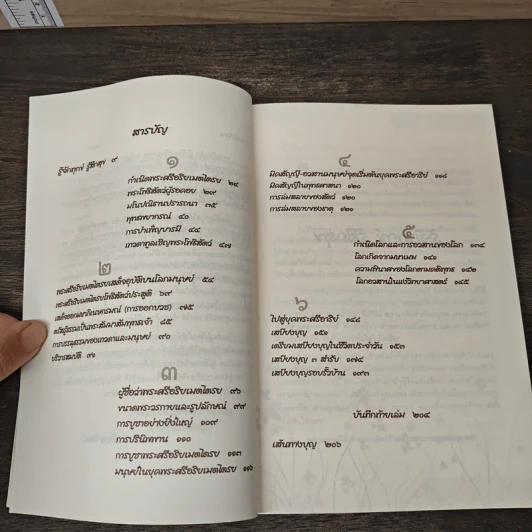 สารบัญ
รู้จักทุกข์ รู้จักสุข ๙
๑
กำเนิดพระศรีอริยเมตไตรย ๒๔
พระโพธิสัตว์ผู้รอคอย ๒๙
มโนปณิธานปรารถนา ๓๕
พุทธพยากรณ์ ๔๐
การบำเพ็ญบารมี ๔๔
เทวดาทูลเชิญพระโพธิสัตว์ ๔๗
๒
พระศรีอริยเมตไตรยเสด็จอุบัติบนโลกมนุษย์ ๕๔
พระศรีอริยเมตไตรยโพธิสัตว์ประสูติ ๖๙
เสด็จออกมหาภิเนษกรมณ์ (การออกบวช) ๗๕
ตรัสรู้ธรรมเป็นพระสัมมาสัมพุทธเจ้า ๘๕
การบรรลุธรรมของเทวดาและมนุษย์ ๙๐
บริวารสมบัติ ๙๑
๓
ผู้ชื่อว่าพระศรีอริยเมตไตรย ๙๖
ขนาดพระวรกายและรูปลักษณ์ ๙๙
การบูชาอย่างยิ่งใหญ่ ๑๐๙
การปรินิพพาน ๑๑๐
การบูชาพระศรีอริยเมตไตรย ๑๑๓
มนุษย์ในยุคพระศรีอริยเมตไตรย ๑๑๖
๔
มิคสัญญี-อวสานมนุษย์จุดเริ่มต้นยุคพระศรีอาริย์
มิคสัญญีในพุทธศาสนา ๑๒๐
การล่มสลายของสัตว์ ๑๒๐
การล่มสลายของธาตุ ๑๒๑
๕
กำเนิดโลกและการอวสานของโลก ๑๓๔
โลกเกิดจากมหาเมฆ
ความพินาศของโลกตามคติพุทธ ๑๔๒
โลกอวสานในแง่วิทยาศาสตร์ ๑๔๕
๖
ไปสู่ยุคพระศรีอาริย์ ๑๔๘
เสบียงบุญ ๑๕๑
เตรียมเสบียงบุญในชีวิตประจำวัน ๑๕๓
เสบียงบุญ ๓ สำรับ ๑๗๔
เสบียงบุญรอบรั้วบ้าน ๑๙๓
บันทึกท้ายเล่ม ๒๐๔
เส้นทางบุญ ๒๐๖